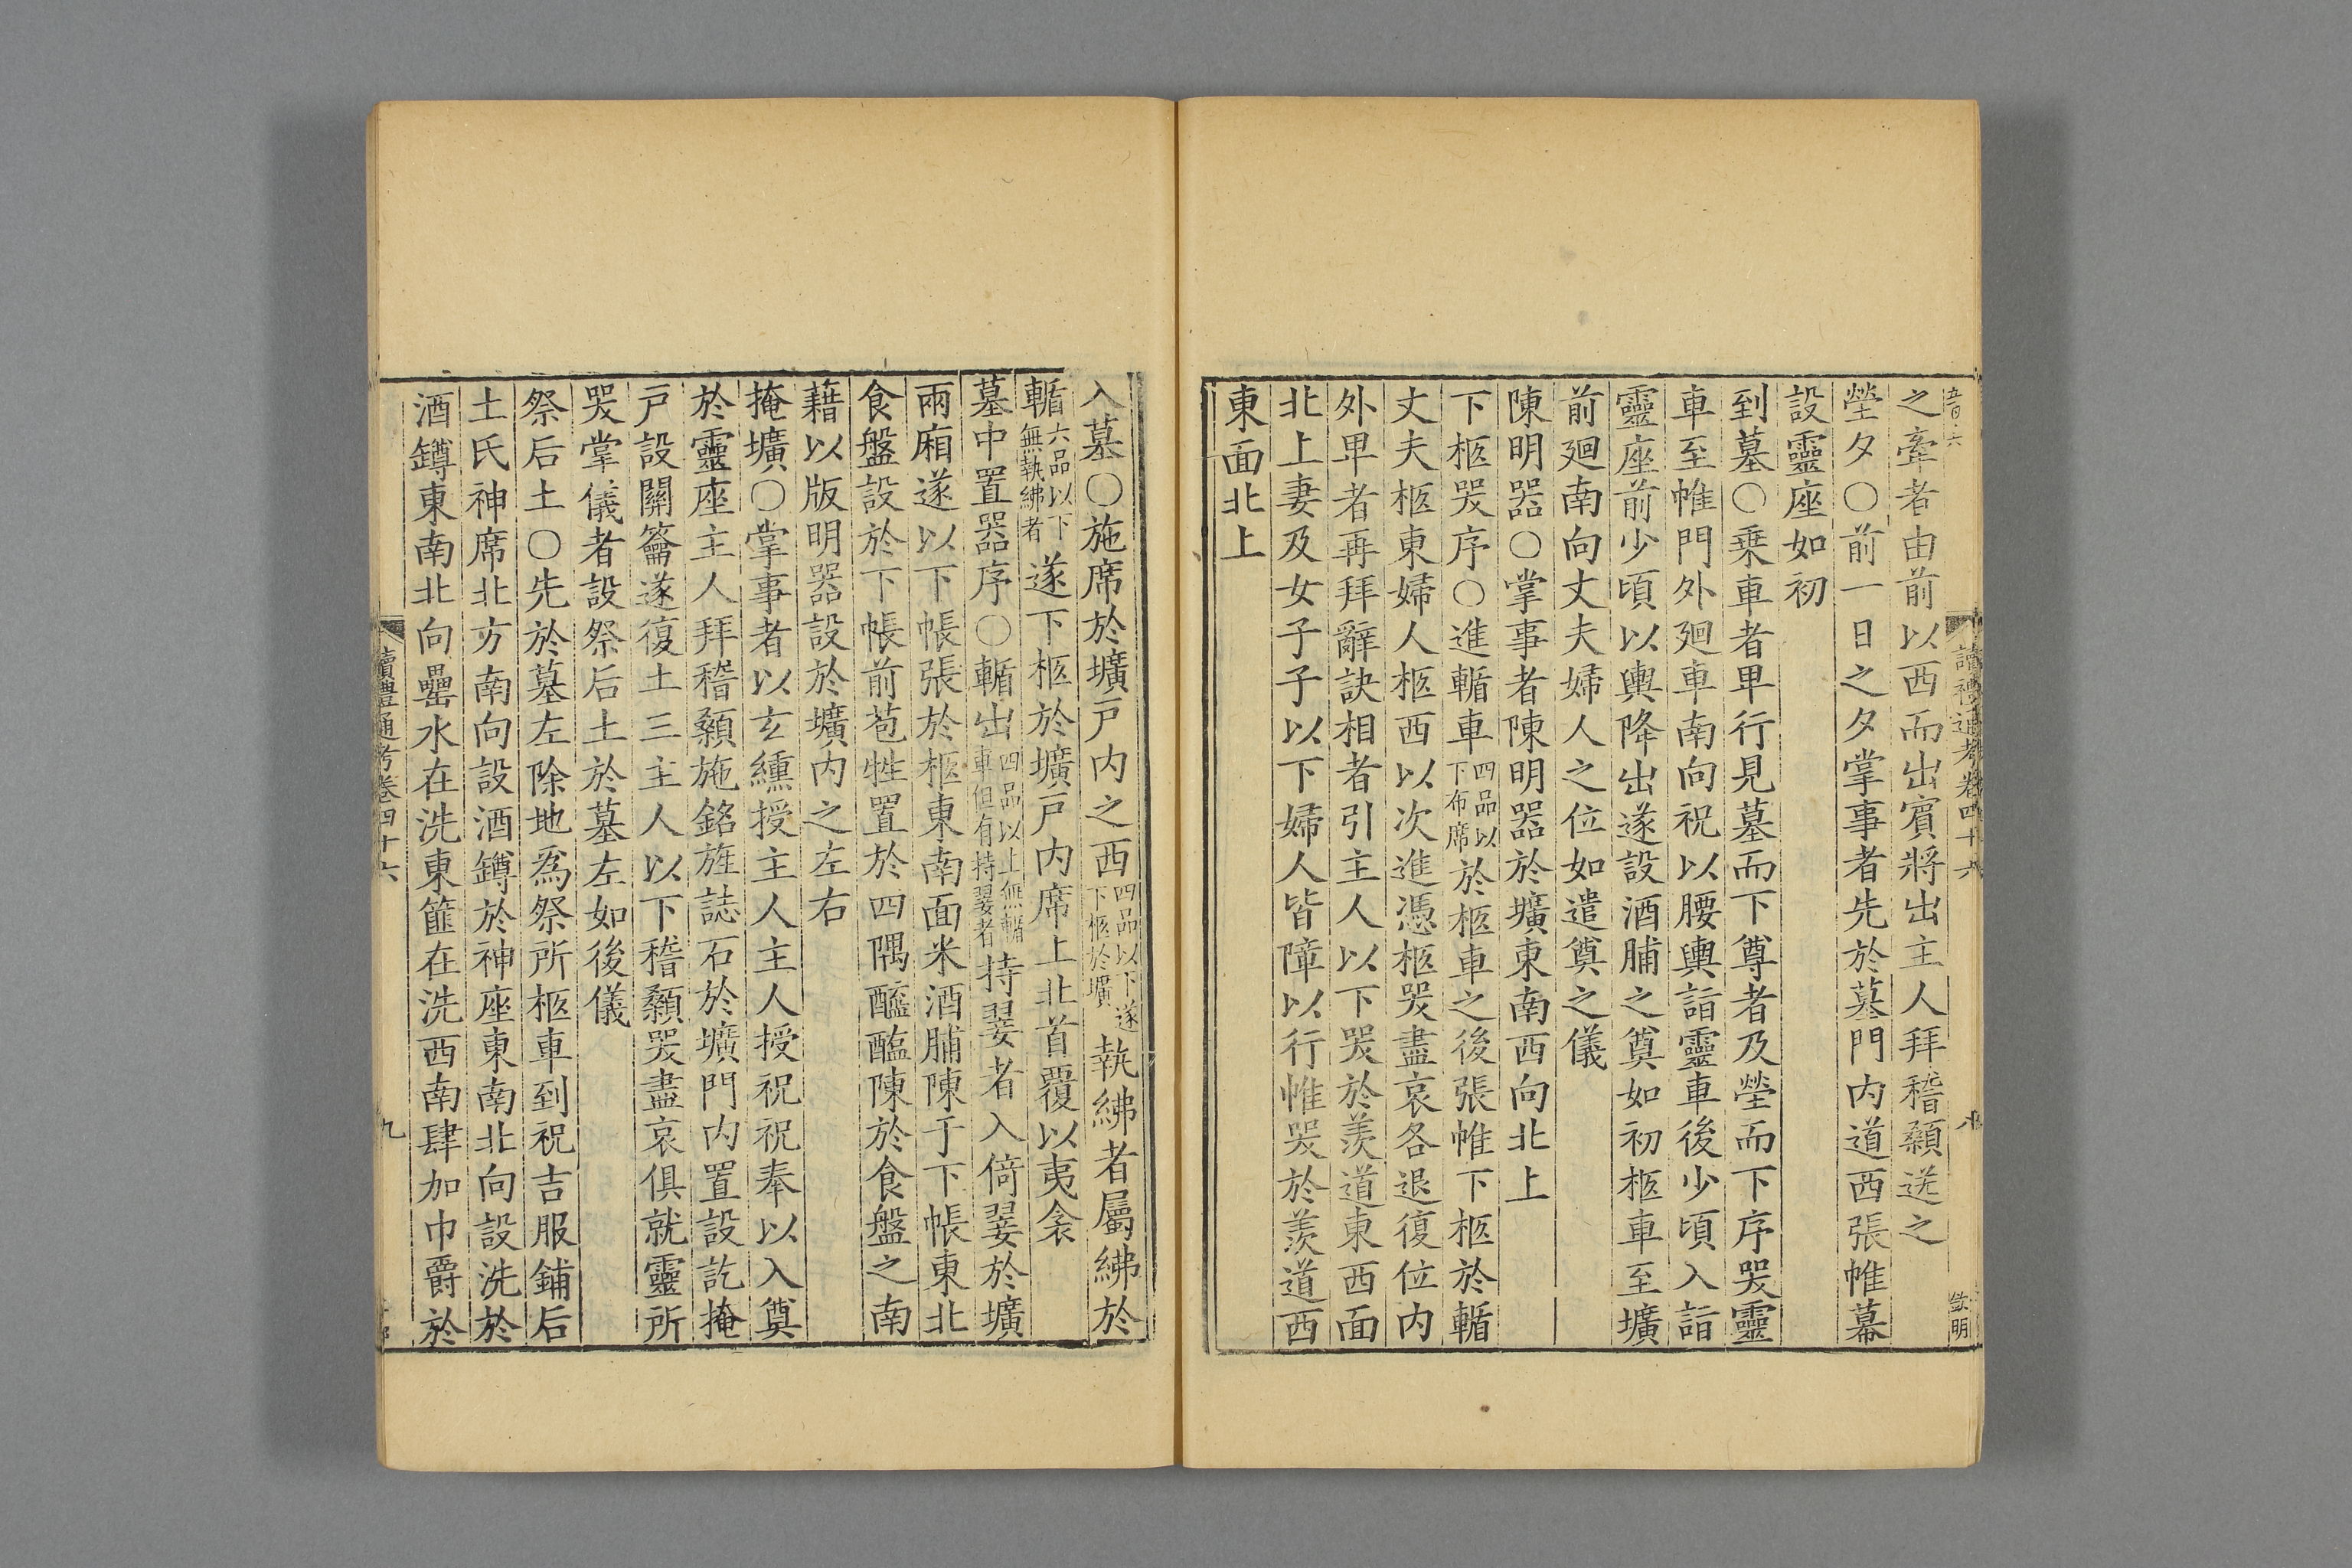 讀禮通考卷四十六
八
之牽者由前以西而出賓將出主人拜稽顙送之
塋夕○前一日之夕掌事者先於墓門内道西張帷幕
設靈座如初
到墓○乗車者卑行見墓而下尊者及塋而下序哭靈
車至帷門外廻車南向祝以腰輿詣靈車後少頃入詣
靈座前少頃以輿降出遂設酒脯之奠如初柩車至壙
前廻南向丈夫婦人之位如遣奠之儀
陳明器○掌事者陳明器於壙東南西向北上
下柩哭序○進輴車四品以下布席於柩車之後張帷下柩於輴
丈夫柩東婦人柩西以次進憑柩哭盡哀各退復位内
外卑者再拜辭訣相者引主人以下哭於羡道東西面
北上妻及女子子以下婦人皆障以行帷哭於羡道西
東面北上
入墓○施席於壙戸内之西四品以下遂下柩於壙執紼者屬紼於
輴六品以下無執紼者遂下柩於壙戸内席上北首覆以夷衾
墓中置器序○輴出四品以上無輴車但有持翣者持翣者入倚翣於壙
兩廂遂以下帳張於柩東南面米酒脯陳于下帳東北
食盤設於下帳前苞牲置於四隅醯醢陳於食盤之南
藉以版明器設於壙内之左右
掩壙○掌事者以玄纁授主人主人授祝祝奉以入奠
於靈座主人拜稽顙施銘旌誌石於壙門内置設訖掩
戸設關籥遂復土三主人以下稽顙哭盡哀俱就靈所
哭掌儀者設祭后土於墓左如後儀
祭后土○先於墓左除地爲祭所柩車到祝吉服鋪后
土氏神席北方南向設酒罇於神座東南北向設洗於
酒罇東南北向罍水在洗東篚在洗西南肆加巾爵於
讀禮通考卷四十六
九